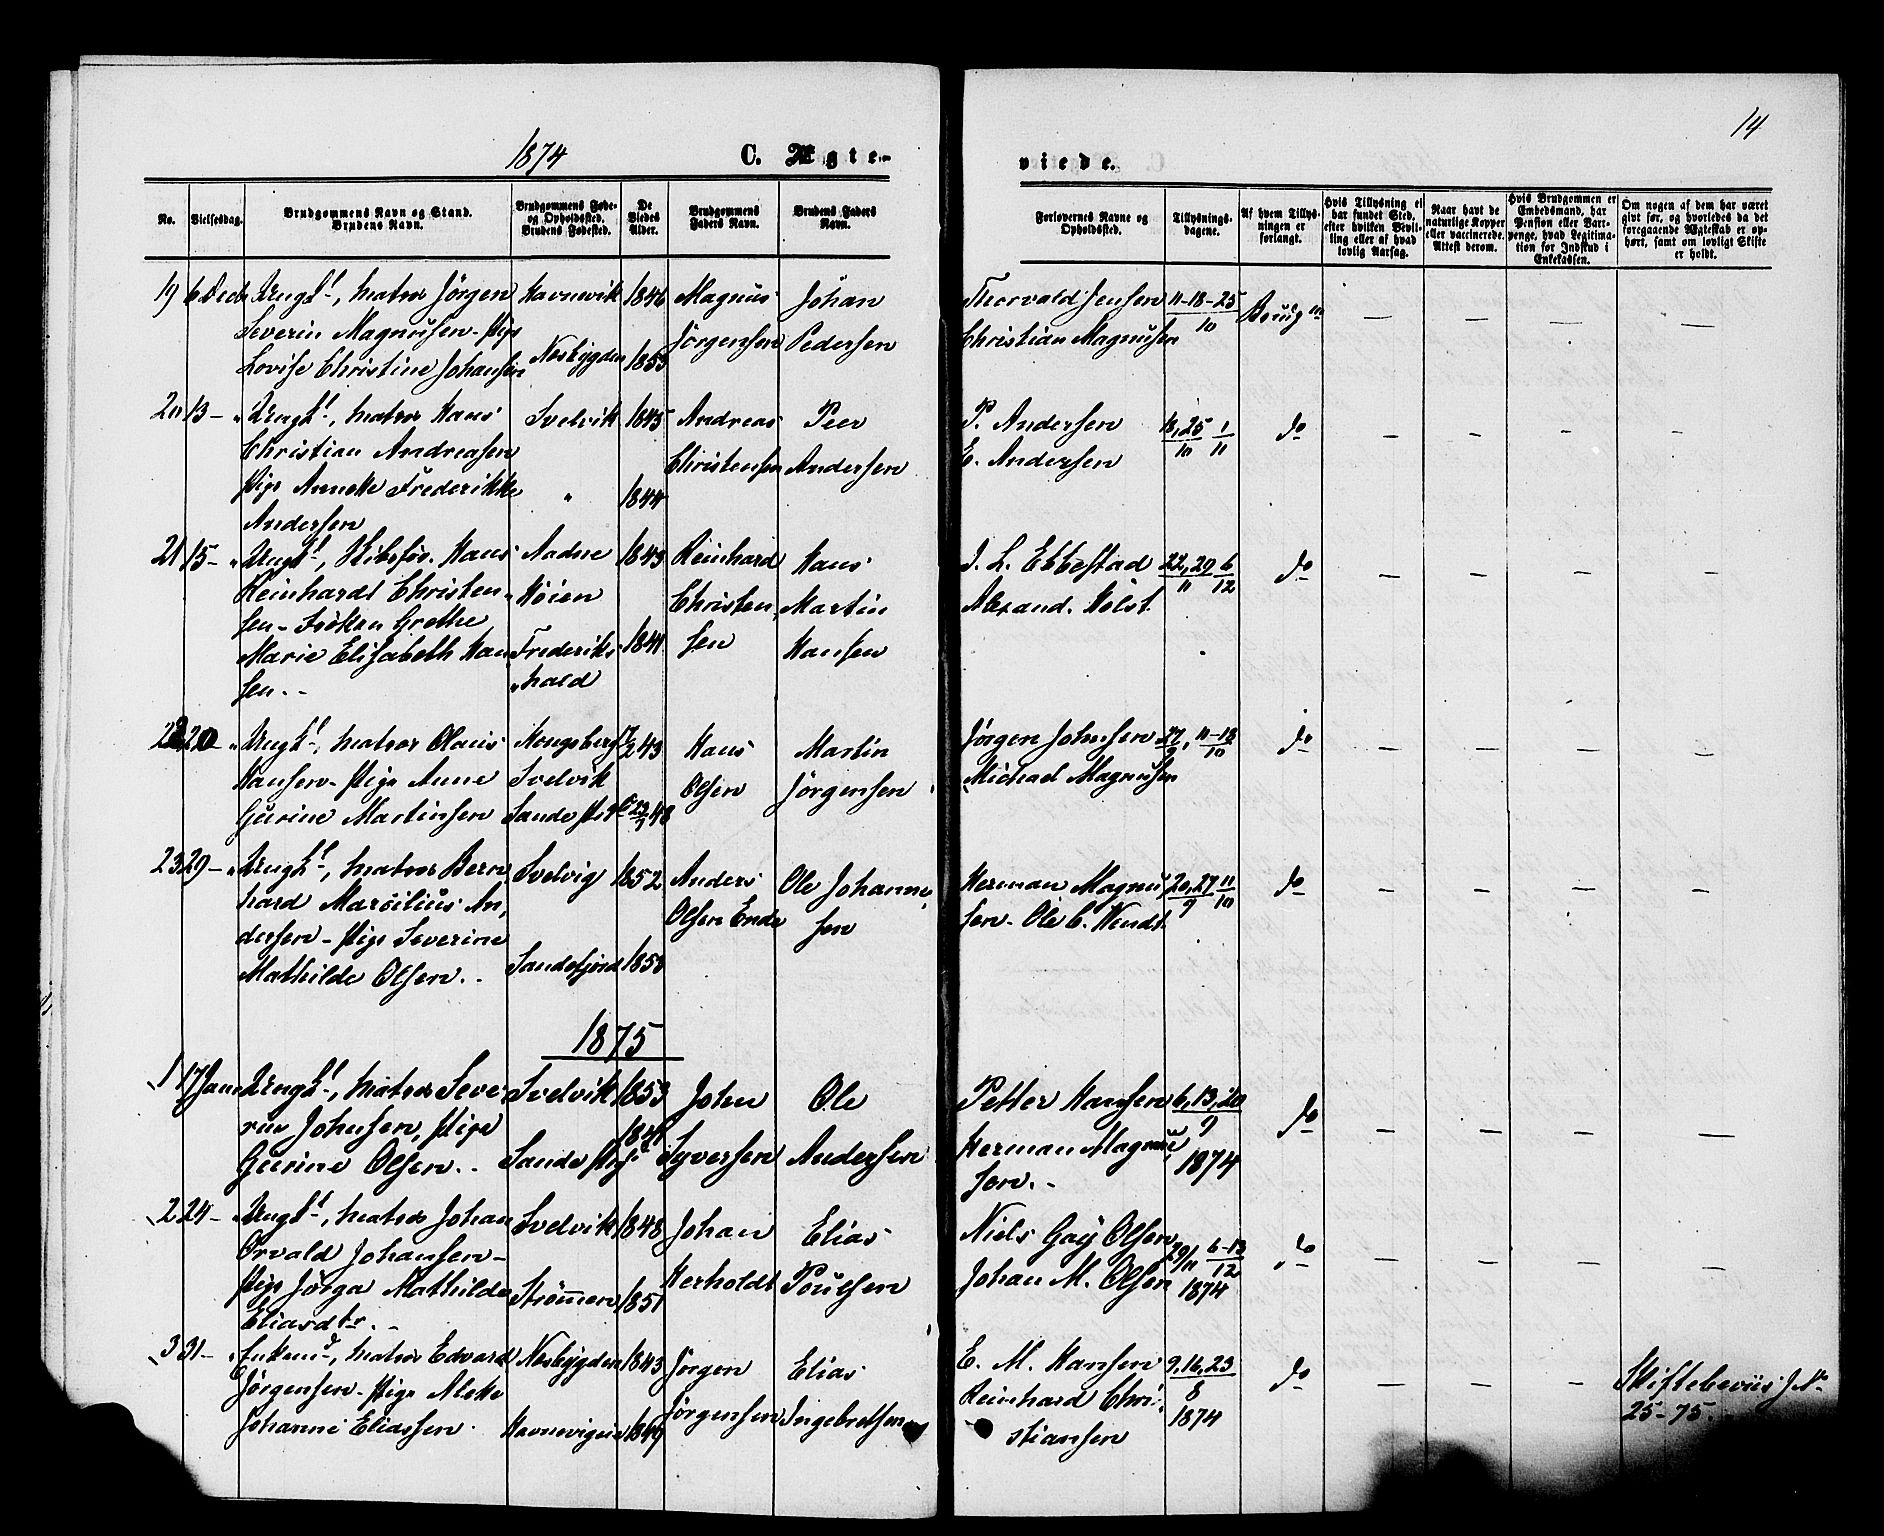 14
1874 C. Ægte-
viede.
No.
Vielsesdag.
Brudgommens Navn og Stand.
Brudens Navn.
Brudgommens Føde-
og Opholdssted.
Brudens Fødested.
De
Viedes
Alder.
Brudgommens
Faders Navn.
Brudens Faders
Navn.
Forlovernes Navne og
Opholdssted.
Tillysnings-
dagene.
Af hvem Tillys-
ningen er
forlangt.
Hvis Tillysning ei
har fundet Sted,
efter hvilken Bevil-
ling eller af hvad
lovlig Aarsag.
Naar havt de
naturlige Kopper
eller vaccinerede.
Attest derom.
Hvis Brudgommen er
Embedsmand, har
Pension eller Vart-
penge, hvad Legitima-
tion for Indskud i
Enkekassen.
Om nogen af dem har været
gift før, og hvorledes da det
foregaaende Ægteskab er op-
hørt, samt om lovligt Skifte
er holdt.
19 6 Decb Ungk., matros Jörgen Havnevik 1846 Magnus Johan Thorvald Jensen 11-18-25/10 Brudg — — — —
Severin Magnusen - Pige Jörgensen Pedersen Christian Magnusen
Lovise Christine Johansen Nesbygden 1853
20 13 - Ungk., matros Hans Svelvik 1845 Andreas Peer P. Andersen 18,25/10 1/11 do — — — —
Christian Andreasen Christensen Andersen E. Andersen
Pige Anneke Frederikke " 1844
Andersen
21 15 - Ungk., Skibsför. Hans Aadne 1843 Reinhard Hans J. L. Ebbestad 22,29/11 6/12 do — — — —
Reinhardt Christen- Köien Christen- Martin Alexand. Holst
sen - Fröken Grethe
Marie Elisabeth Han Frederiks 1841 sen Hansen
sen. - hald
22 20 - Ungk., matros Olaus Kongsberg 17/2 43 Hans Martin Jörgen Johnsen 27/9, 11-18/10 do — — — —
Hansen - Pige Anne Svelvik Olsen Jörgensen Michael Magnusen
Gurine Martinsen Sande 23/9 48
23 29 - Ungk., matros Bern Svelvig 1852 Anders Ole Johanne Herman Magnu 20,27/9 11/10 do — — — —
hard Marsilius An, Olsen Ende sen sen - Ole C. Wendt
dersen - Pige Severine
Mathilde Olsen. . Sandefjord 1853
1875
1 17 Janu Ungk., matros Seve Svelvik 1853 Johen Ole Petter Hansen 6,13,20/9 1874 do — — — —
rin Johnsen, Pige 1841 Syversen Andersen Herman Magnu
Gurine Olsen. . Sande sen. -
2 24 - Ungk., matros Johan Svelvik 1848 Johan Elias Niels Gay Olsen 29/11 6-13/12 1874 do — — — —
Orvald Johansen - Herholdt Poulsen Johan M. Olsen
Pige Jörga Mathilde Strömmen 1851
Eliasdtr. -
3 31 - Enkem., matros Edvard Nesbygden 1843 Jörgen Elias E. M. Hansen 9,16,23/8 1874 do — — — Skiftebeviis J. No
Jörgensen - Pige Aleke Jörgensen Ingebretsen Reinhard Chri- 25-75.
Johanne Eliassen Havnevigen 1849 stiansen